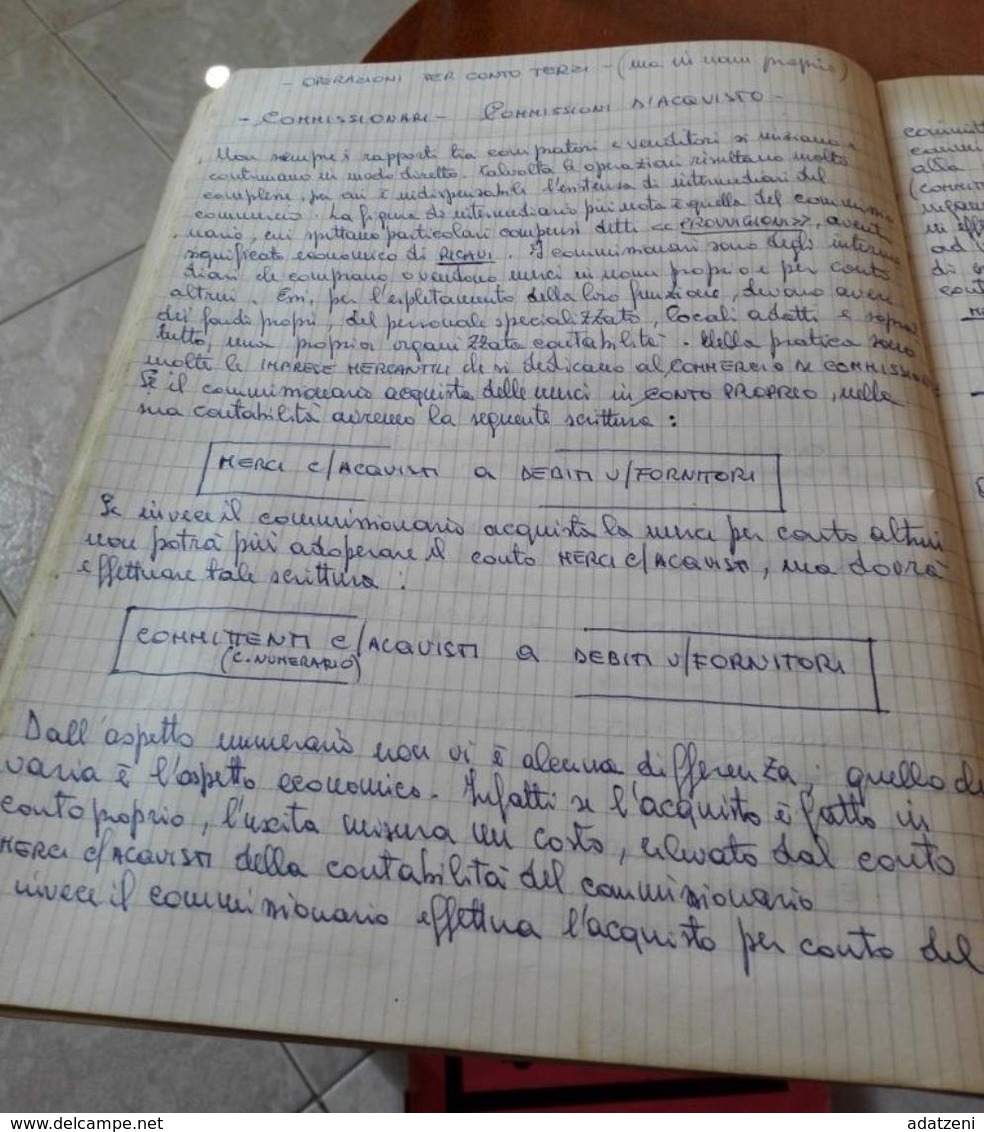 - OPERAZIONI PER CONTO TERZI - (ma in nome proprio)
- COMMISSIONARI - COMMISSIONI D'ACQUISTO -
Non sempre i rapporti tra compratori e venditori si iniziano e
continuano in modo diretto. Talvolta le operazioni risultano molto
complesse, per cui è indispensabile l'esistenza di intermediari del
commercio. La figura di intermediario più nota è quella del commissio
nario, cui spettano particolari compensi detti << PROVVIGIONI >>, aventi
significato economico di RICAVI. I commissionari sono degli interme
diari che comprano o vendono merci in nome proprio e per conto
altrui. Essi, per l'espletamento della loro funzione, devono avere
dei fondi propri, del personale specializzato, locali adatti e sopra
tutto, una propria organizzata contabilità. Nella pratica sono
molte le IMPRESE MERCANTILI che si dedicano al COMMERCIO DI COMMISSIONE
Se il commissionario acquista delle merci in CONTO PROPRIO, nella
sua contabilità avremo la seguente scrittura :
MERCI C/ACQUISTI a DEBITI V/FORNITORI
Se invece il commissionario acquista la merce per conto altrui
non potrà più adoperare il conto MERCI C/ACQUISTI, ma dovrà
effettuare tale scrittura :
COMMITTENTI C/ACQUISTI a DEBITI V/FORNITORI
(C. NUMERARIO)
Dall'aspetto numerario non vi è alcuna differenza; quello che
varia è l'aspetto economico. Infatti se l'acquisto è fatto in
conto proprio, l'uscita misura un costo, rilevato dal conto
MERCI C/ACQUISTI della contabilità del commissionario
invece il commissionario effettua l'acquisto per conto del
alla
ad
di
www.delcampe.net
adatzeni